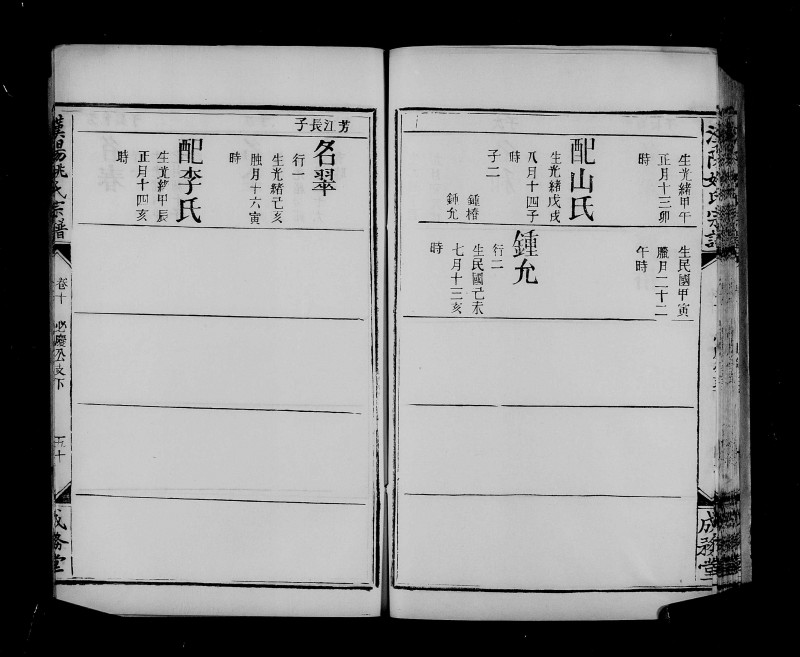 生光緒甲午
正月十三卯
時
配山氏
生光緒戊戌
八月十四子
時
子二
鍾椿
鍾允
生民國甲寅
臘月二十二
午時
鍾允
行二
生民國己未
七月十三亥
時
成務堂
芳江長子
名翠
行一
生光緒己亥
臘月十六寅
時
配李氏
生光緒甲辰
正月十四亥
時
漢陽姚氏宗譜
卷十
五十
成務堂